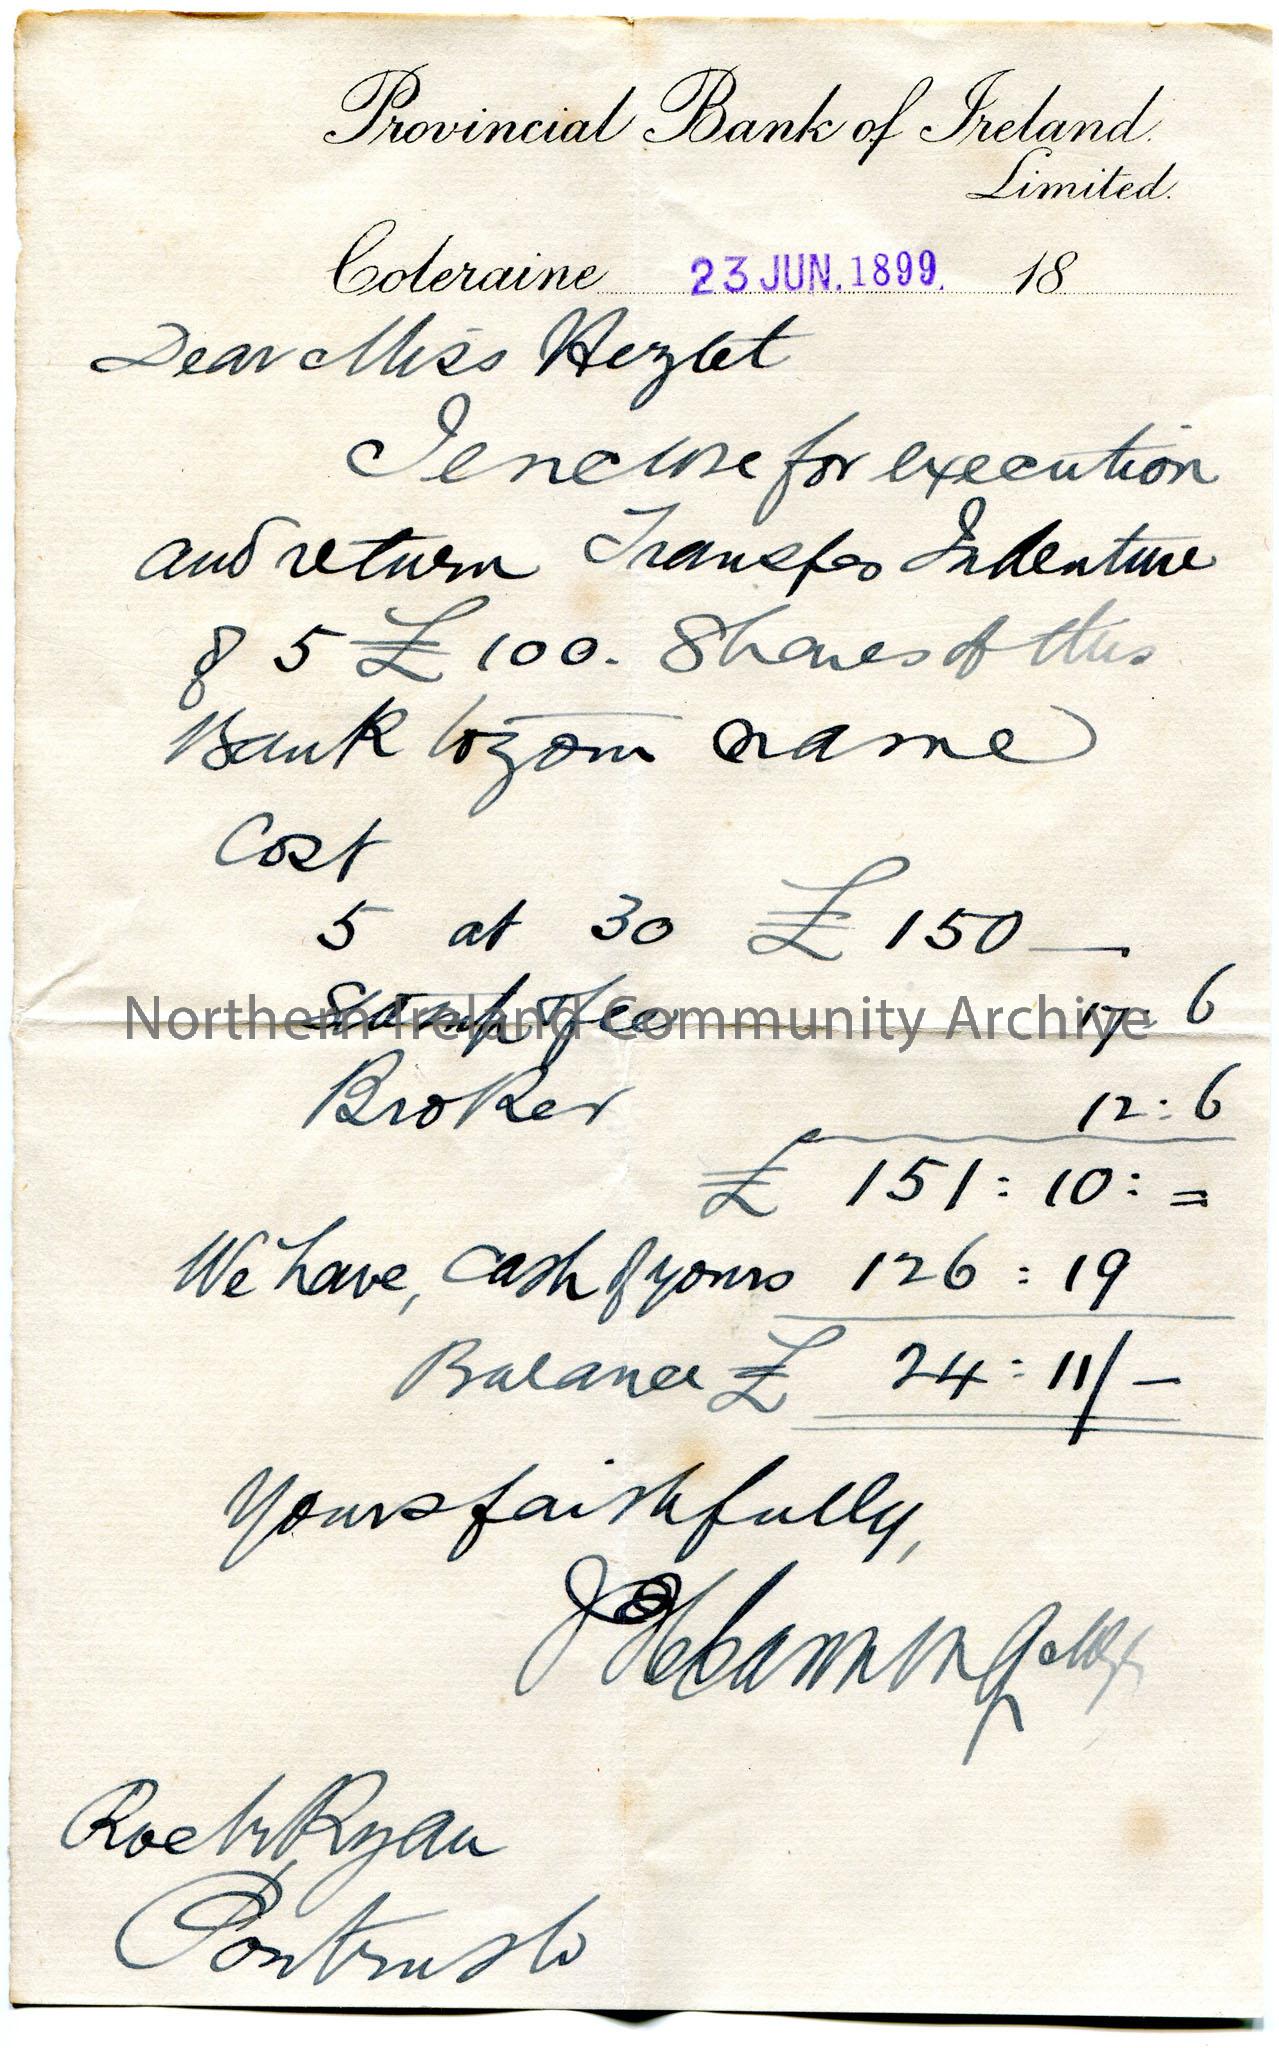 Provincial Bank of Ireland
Limited.
Coleraine 23 JUN. 1899. 18
Dear Miss Hezlet
I enclose for execution
and return Transfer Indenture
of 5 £ 100. Shares of this
Bank to your name
Cost
5 at 30 £ 150 —
Stamp & fee 17: 6
Northern Ireland Community Archive
Broker 12: 6
£ 151: 10: =
We have, cash of yours 126: 19
Balance £ 24: 11/ —
Yours faithfully,
Portrush